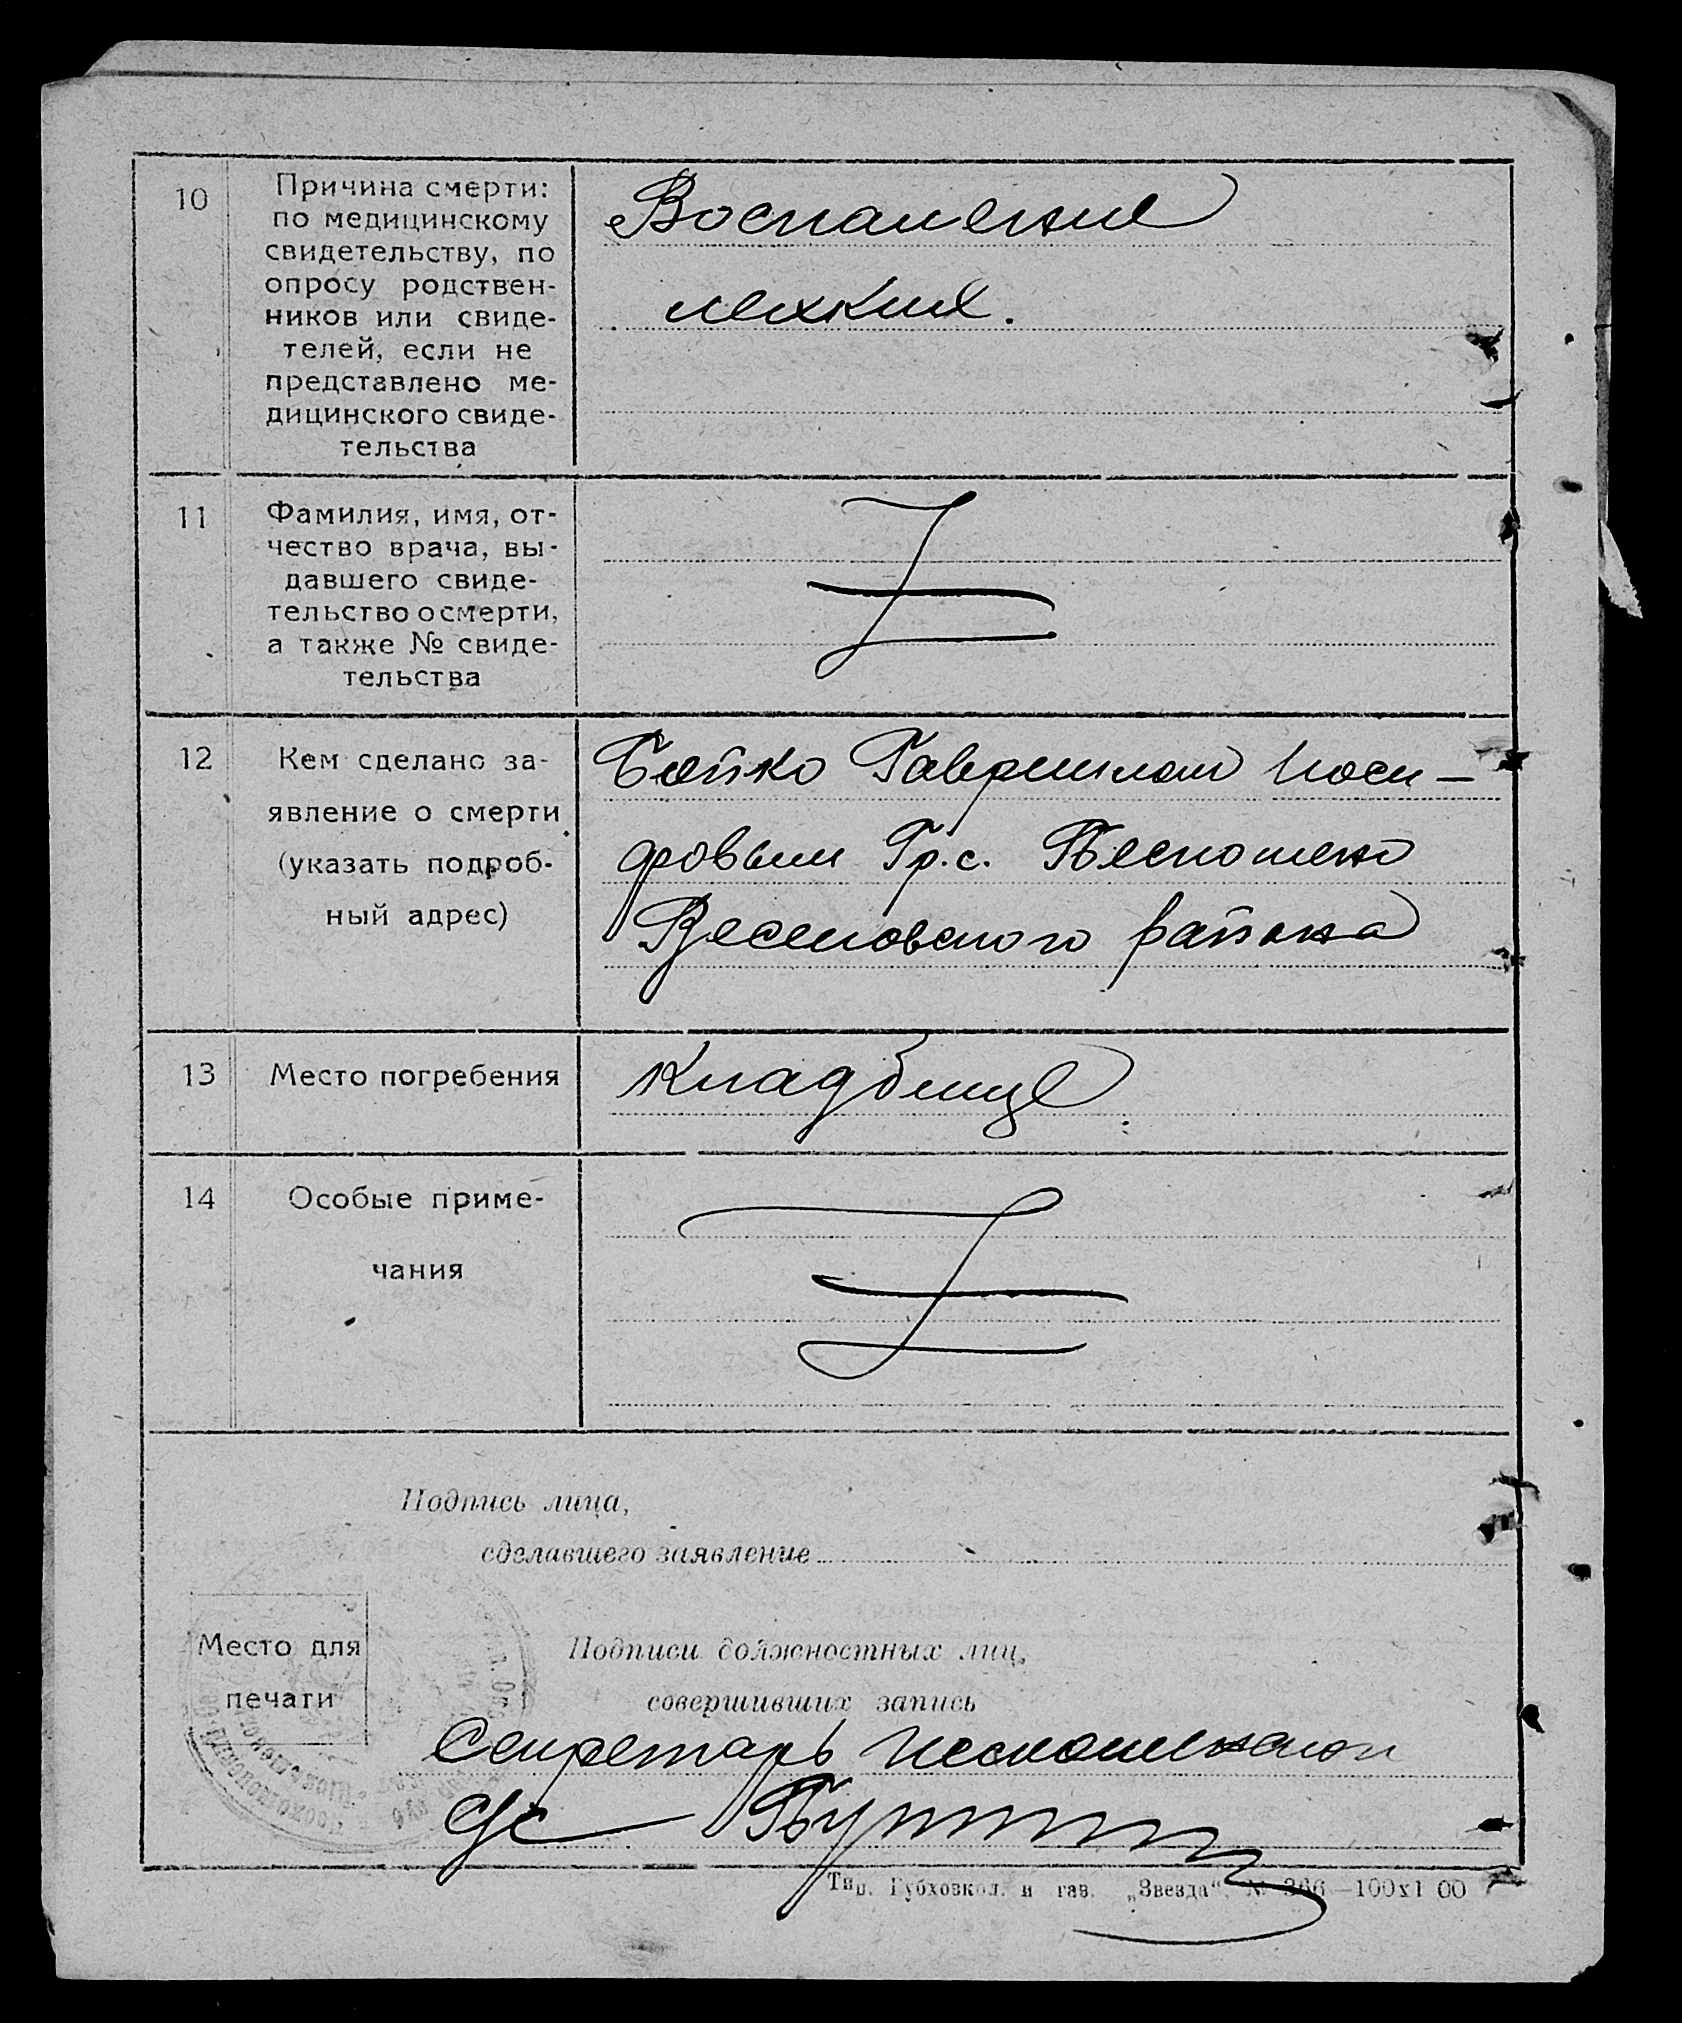 10
Причина смерти:
по медицинскому
свидетельству, по
опросу родствен-
ников или свиде-
телей, если не
представлено ме-
дицинского свиде-
тельства
Воспаление
лехких.
11
Фамилия, имя, от-
чество врача, вы-
давшего свиде-
тельство о смерти,
а также № свиде-
тельства
12
Кем сделано за-
явление о смерти
(указать подроб-
ный адрес)
Бойко Гавриилом
Гр. с.
Веселовского района
13
Место погребения
Кладбище
14
Особые приме-
чания
Подпись лица,
сделавшего заявление
Место для
печати
Подписи должностных лиц,
совершивших запись
Секретарь
с/с
Тип. Губховкол. и газ. „Звезда“, № 366—100х1 00